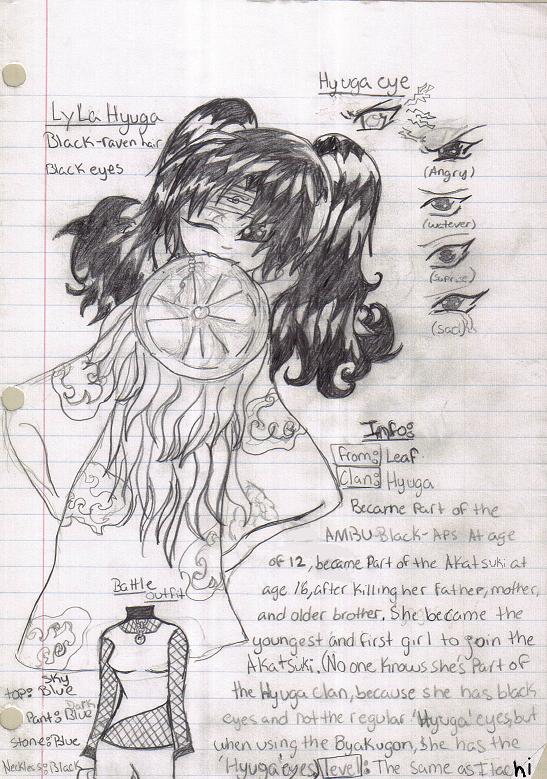 Hyuga eye
LyLa Hyuga
Black-raven hair
Black eyes
(Angry)
(watever)
(suprise)
(sad)
Info:
From: Leaf
Clan: Hyuga
Became Part of the
AMBU-Black-Aps At age
of 12, became Part of the Akatsuki at
age 16, after killing her Father, mother,
and older brother. She became the
youngest and first girl to join the
Akatsuki. (No one knows she's Part of
the Hyuga clan, because she has black
eyes and not the regular 'Hyuga' eyes, but
when using the Byakugon, she has the
'Hyuga' eyes) level: The same as Itachi
Battle
outfit
top: Sky Blue
Pants: Dark Blue
stone: Blue
Neckless: Black